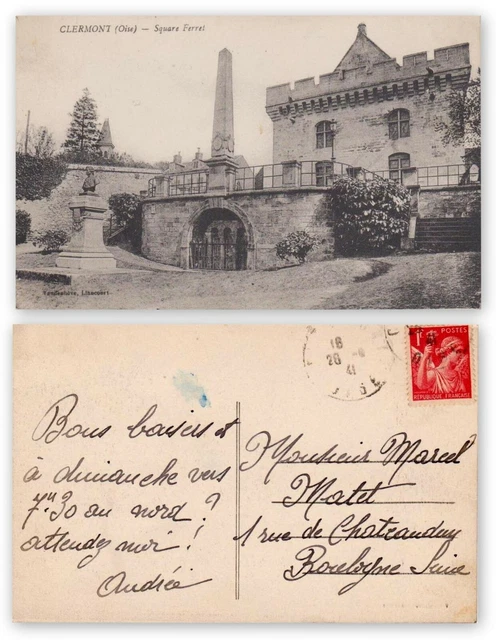 CLERMONT (Oise) — Square Ferret
Vandenhove, Liancourt
18
20 - 8
41
OISE
1F POSTES
RÉPUBLIQUE FRANÇAISE
Bons baisers et
à dimanche vers
7h30 au nord?
attendez moi!
Andrée
Monsieur Marcel
Matet
1 rue de
Boulogne Seine